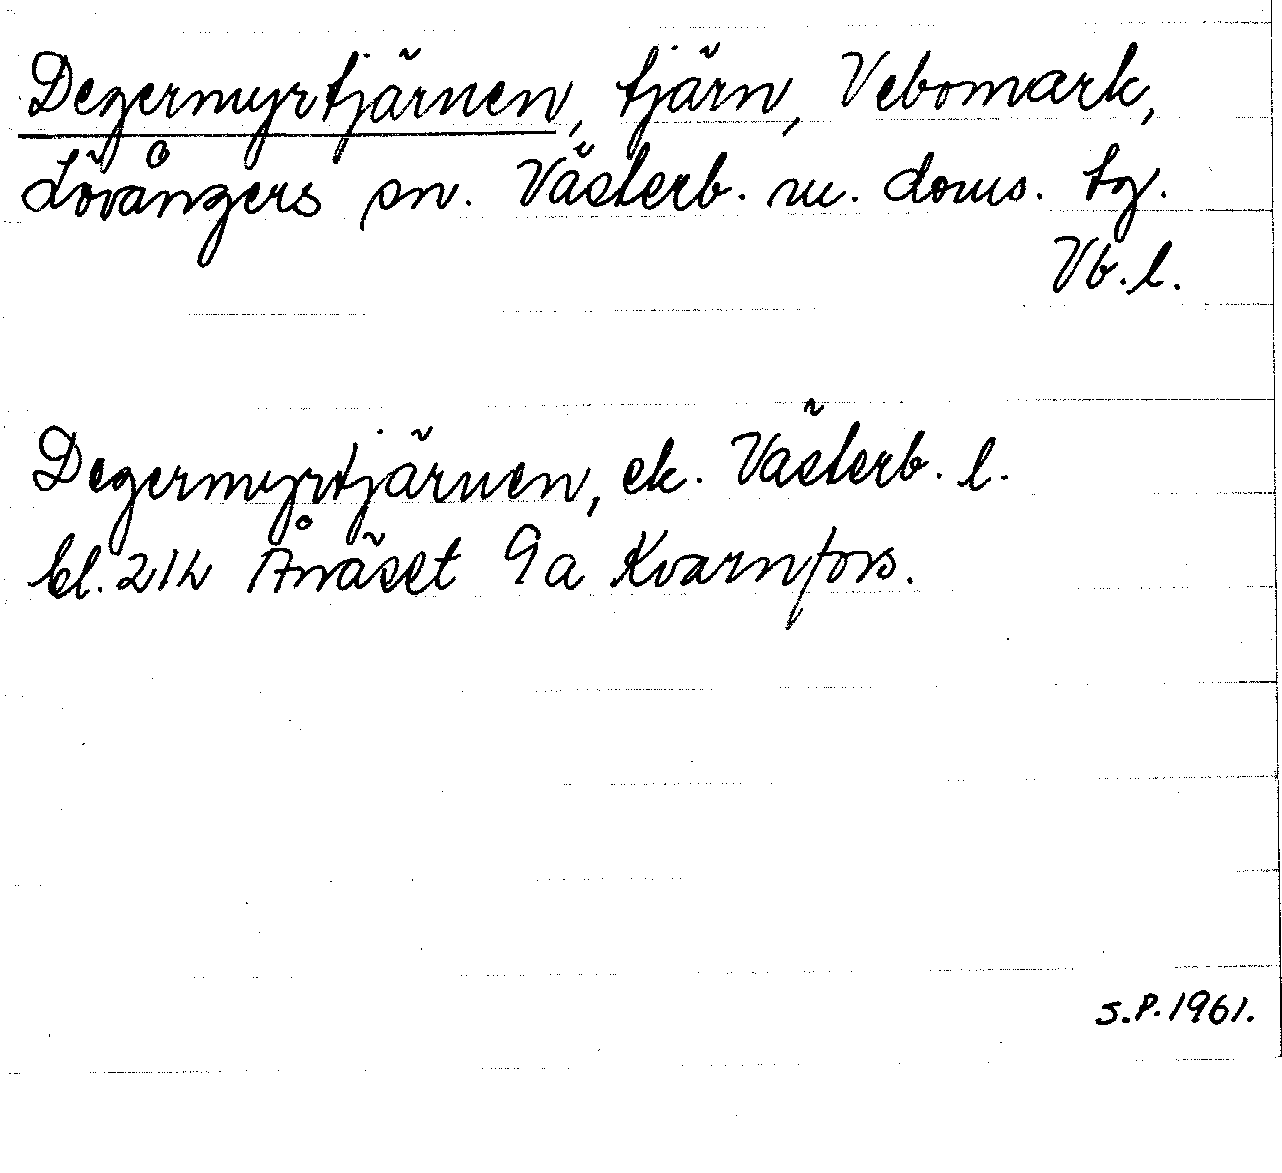 Degermyrtjärnen, tjärn, Vebomark,
Lövångers sn. Västerb. m. doms. tg.
Vb. l.
Degermyrtjärnen, ek. Västerb. l.
bl. 21h Ånäset 9a Kvarnfors.
S.P. 1961.